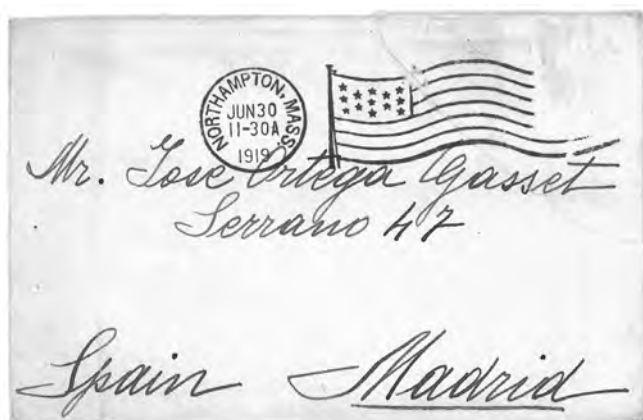 NORTHAMPTON, MASS.
JUN 30
11-30A
1919
Mr. Jose Ortega Gasset
Serrano 47
Spain Madrid